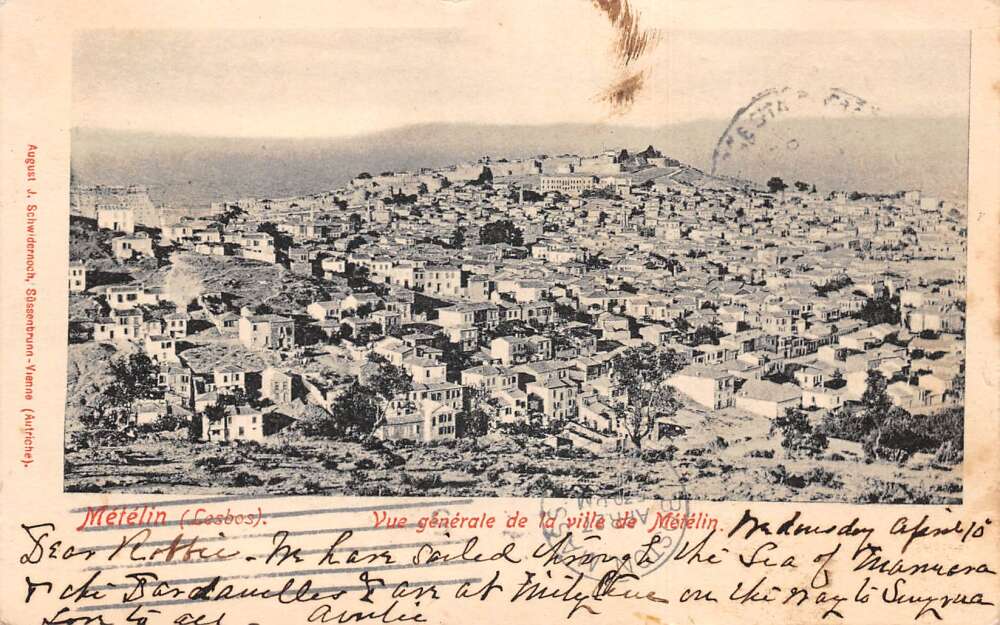 August J. Schwidernoch, Süssenbrunn-Vienne (Autriche).
Métélin (Lesbos).
Vue générale de la ville de Métélin.
Wednesday April 10
Dear Robbie - We have sailed through the Sea of Marmora
& the Dardanelles & are at Mitylene on the way to Smyrna
Love to all - Auntie